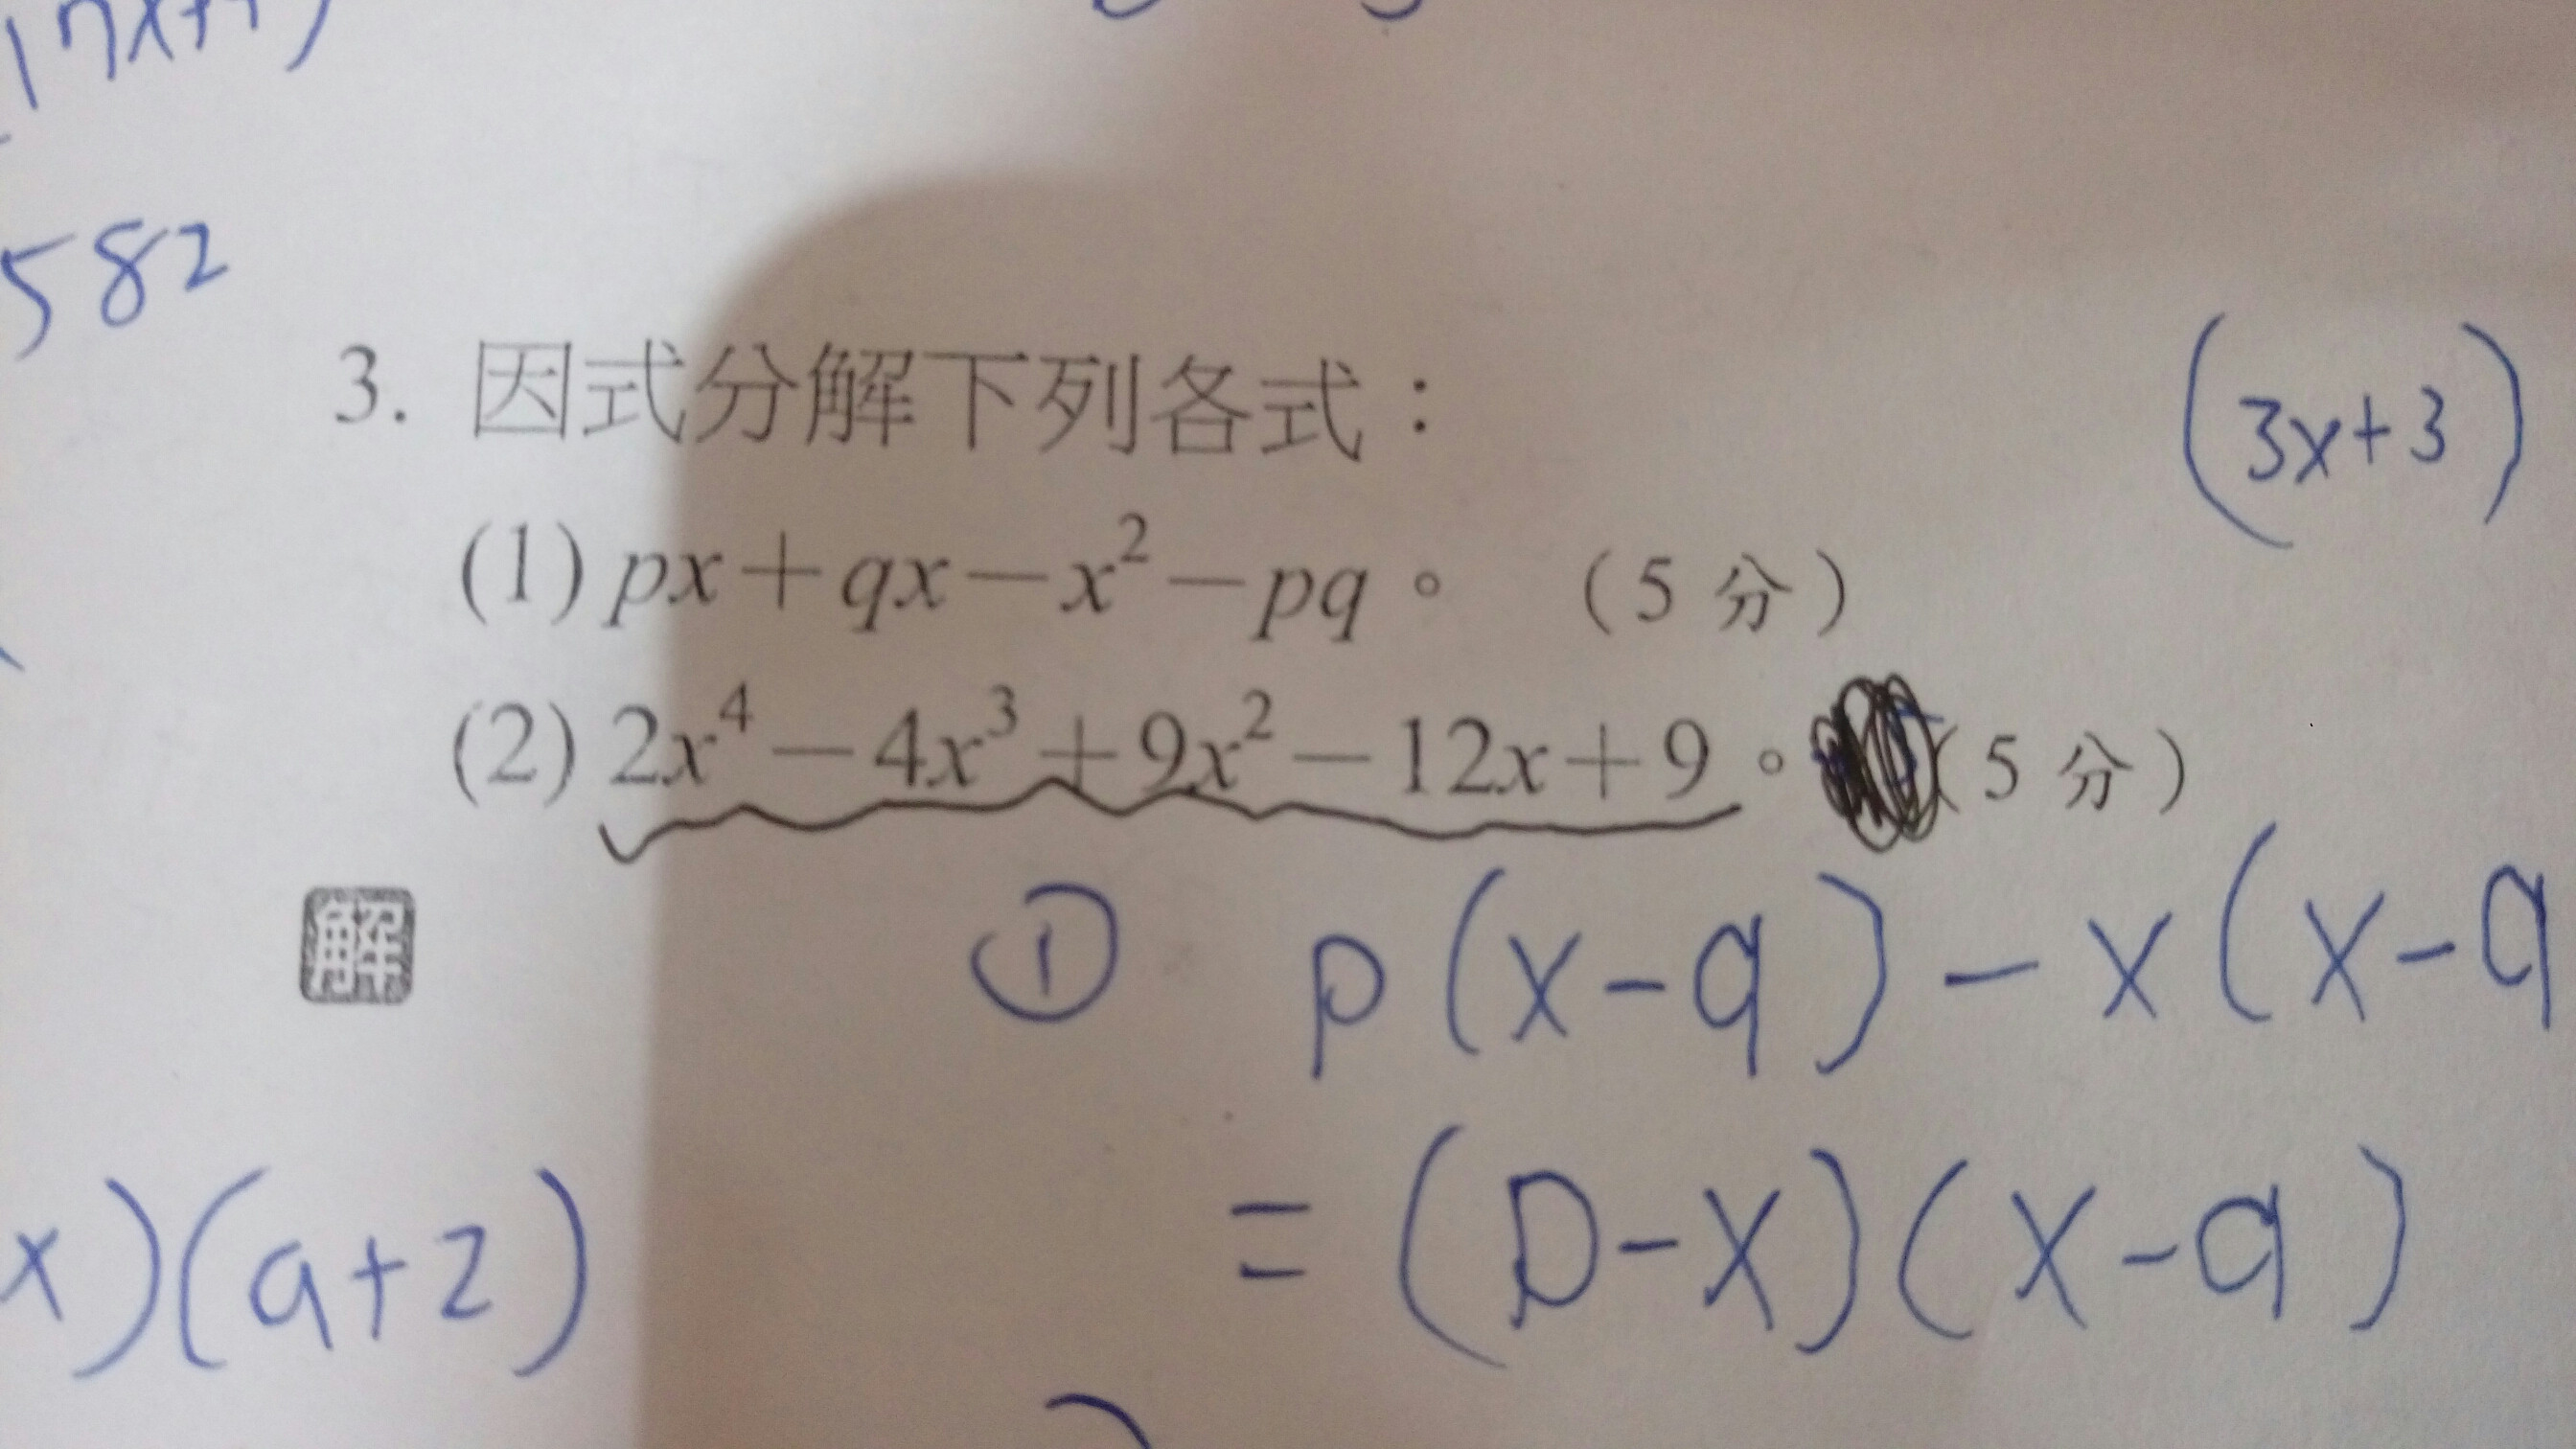 582
3. 因式分解下列各式：
(3x+3)
(1) px+qx−x²−pq。 （5 分）
(2) 2x⁴−4x³+9x²−12x+9。 （5 分）
解
① p(x-q)-x(x-q
x)(a+2)
=(p-x)(x-q)